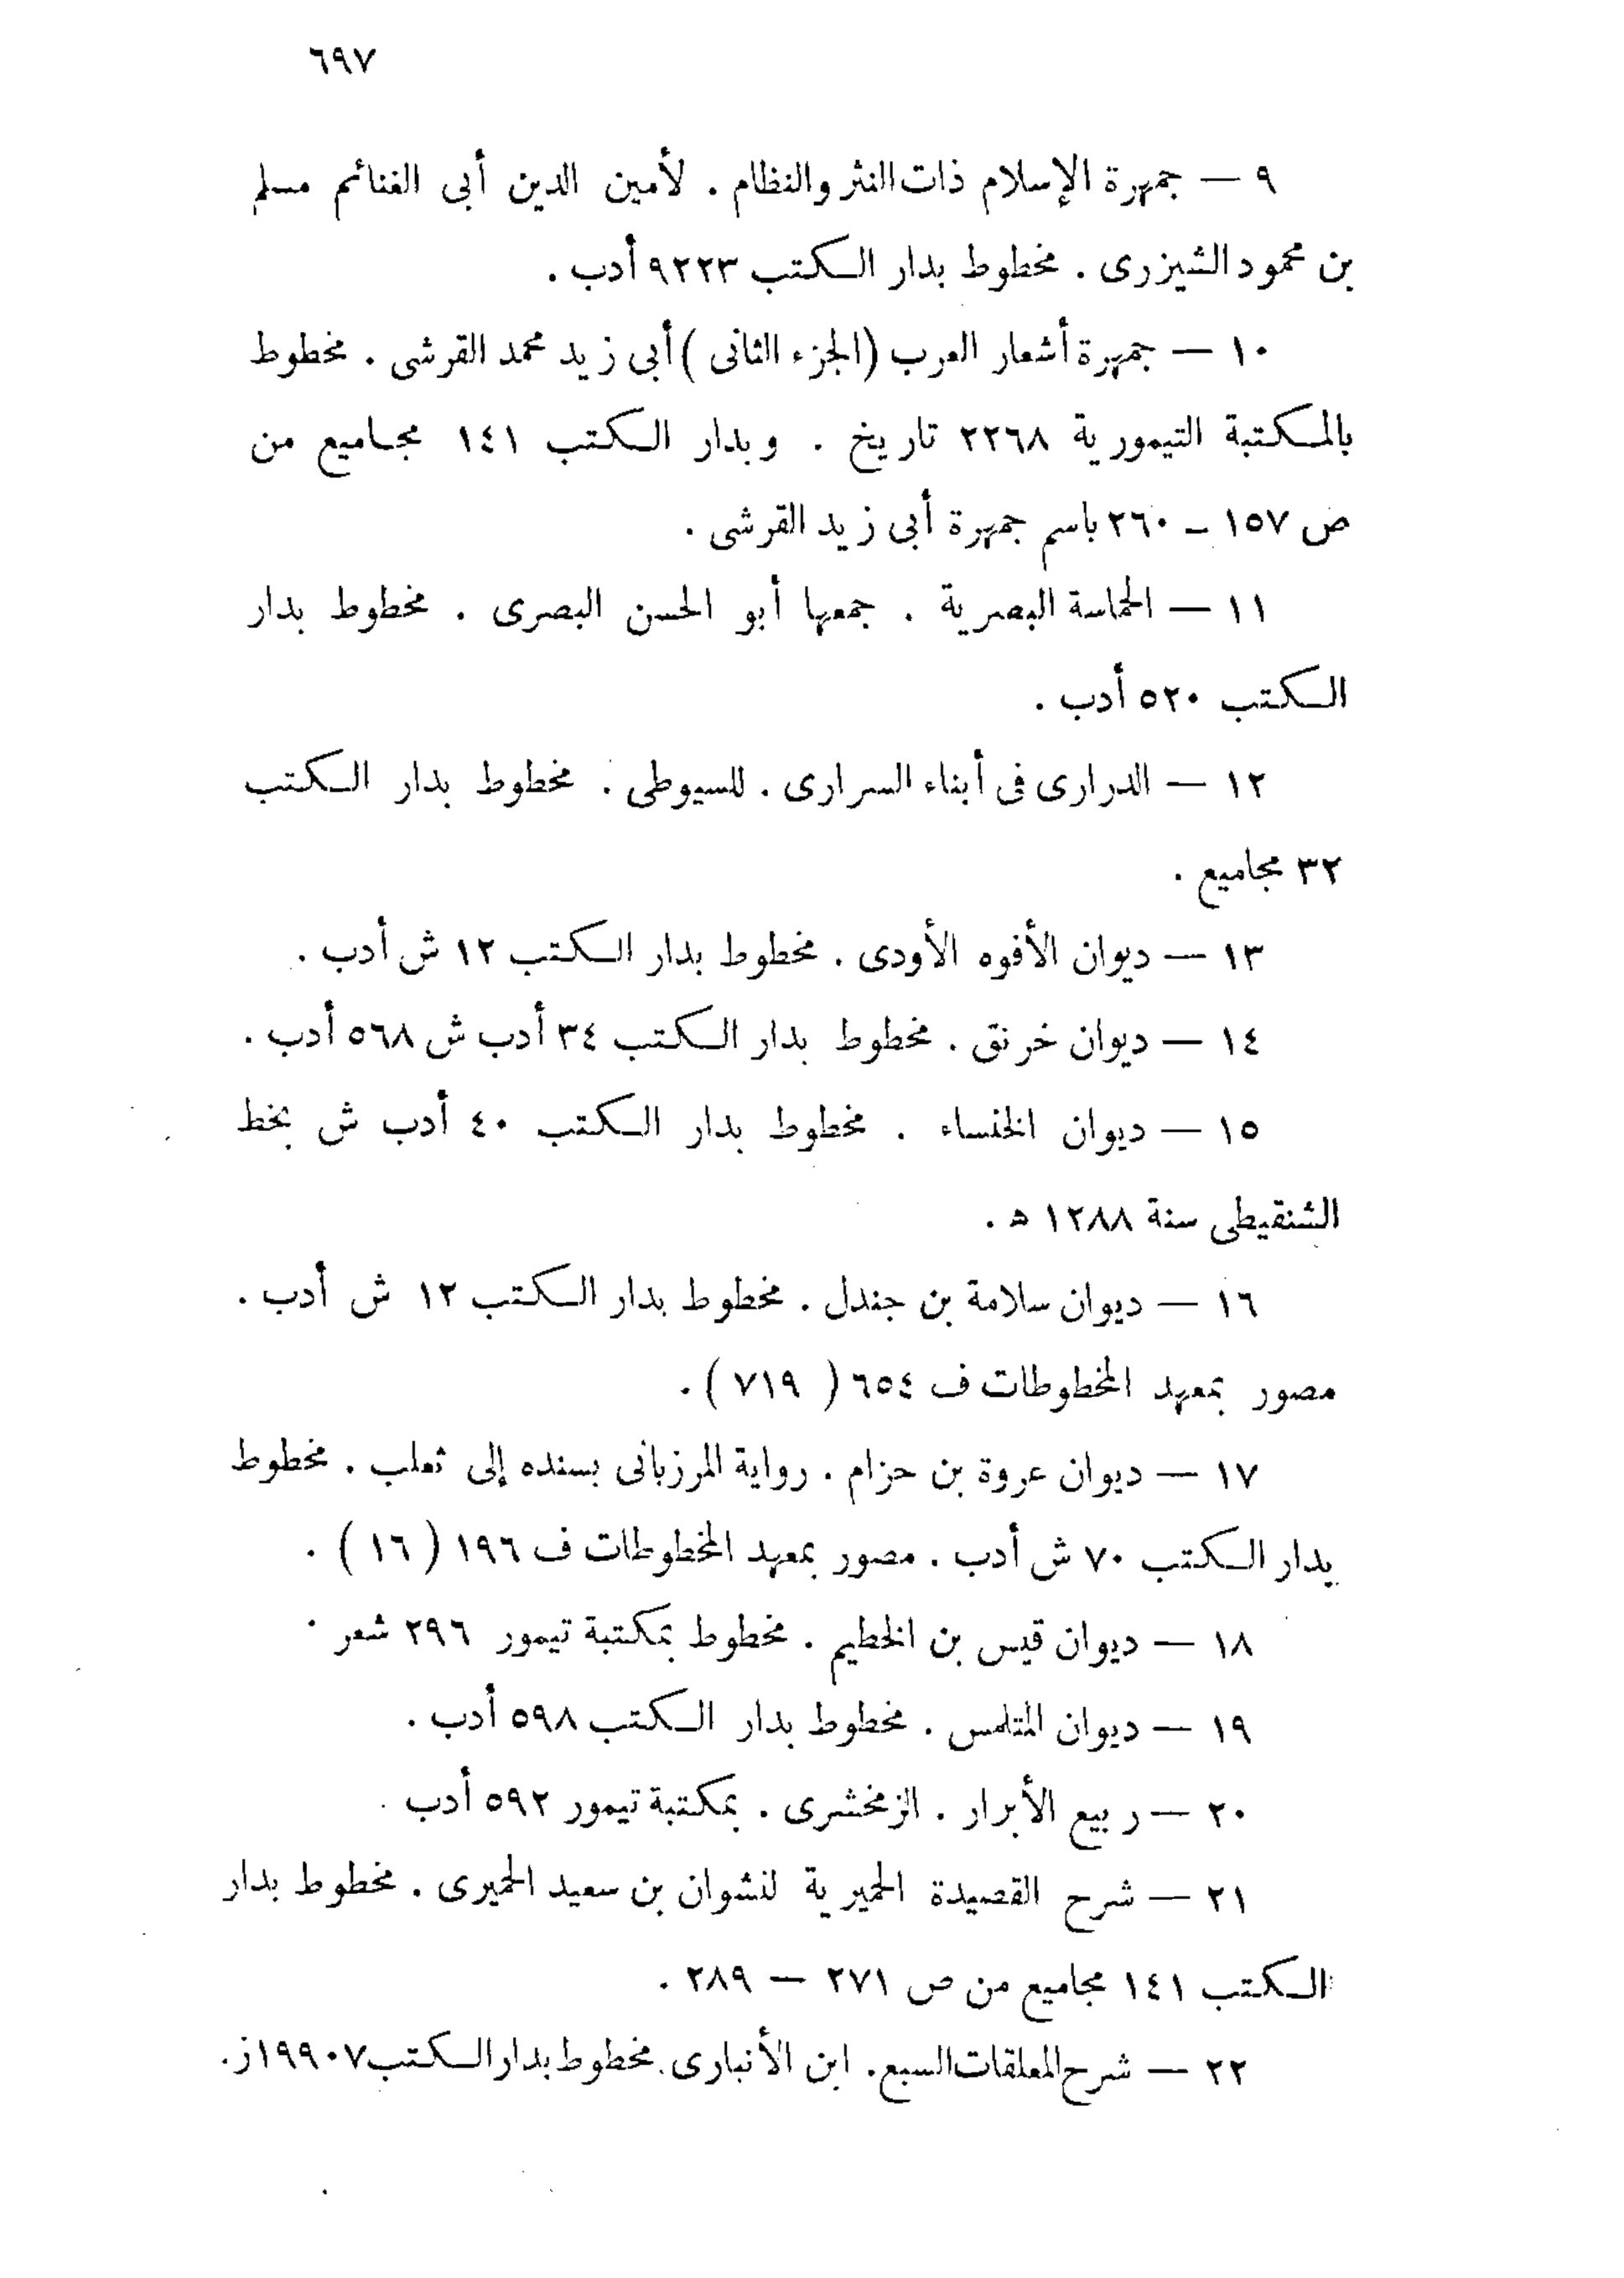 ٦٩٧
٩ — جمهرة الإسلام ذات النثر والنظام . لأمين الدين أبى الغنائم مسلم
بن محمود الشيزرى . مخطوط بدار الكتب ٩٢٢٣ أدب .
١٠ — جمهرة أشعار العرب (الجزء الثانى ) أبى زيد محمد القرشى . مخطوط
بالمكتبة التيمورية ٢٢٦٨ تاريخ . وبدار الكتب ١٤١ مجاميع من
ص ١٥٧ – ٢٦٠ باسم جمهرة أبى زيد القرشى .
١١ — الحماسة البصرية . جمعها أبو الحسن البصرى . مخطوط بدار
الكتب ٥٢٠ أدب .
١٢ — الدرارى فى أبناء السرارى . للسيوطى . مخطوط بدار الكتب
٣٢ مجاميع .
١٣ — ديوان الأفوه الأودى . مخطوط بدار الكتب ١٢ ش أدب .
١٤ — ديوان خرنق . مخطوط بدار الكتب ٣٤ أدب ش ٥٦٨ أدب .
١٥ — ديوان الخنساء . مخطوط بدار الكتب ٤٠ أدب ش بخط
الشنقيطى سنة ١٢٨٨ ه .
١٦ — ديوان سلامة بن جندل . مخطوط بدار الكتب ١٢ ش أدب .
مصور بمعهد المخطوطات ف ٦٥٤ ( ٧١٩ ) .
١٧ — ديوان عروة بن حزام . رواية المرزبانى بسنده إلى ثعلب . مخطوط
بدار الكتب ٧٠ ش أدب . مصور بمعهد المخطوطات ف ١٩٦ ( ١٦ ) .
١٨ — ديوان قيس بن الخطيم . مخطوط بمكتبة تيمور ٢٩٦ شعر .
١٩ — ديوان المتلمس . مخطوط بدار الكتب ٥٩٨ أدب .
٢٠ — ربيع الأبرار . الزمخشرى . بمكتبة تيمور ٥٩٢ أدب .
٢١ — شرح القصيدة الحميرية لنشوان بن سعيد الحميرى . مخطوط بدار
الكتب ١٤١ مجاميع من ص ٢٧١ — ٢٨٩ .
٢٢ — شرح المعلقات السبع . ابن الأنبارى . مخطوط بدار الكتب ١٩٩٠٧ ز .